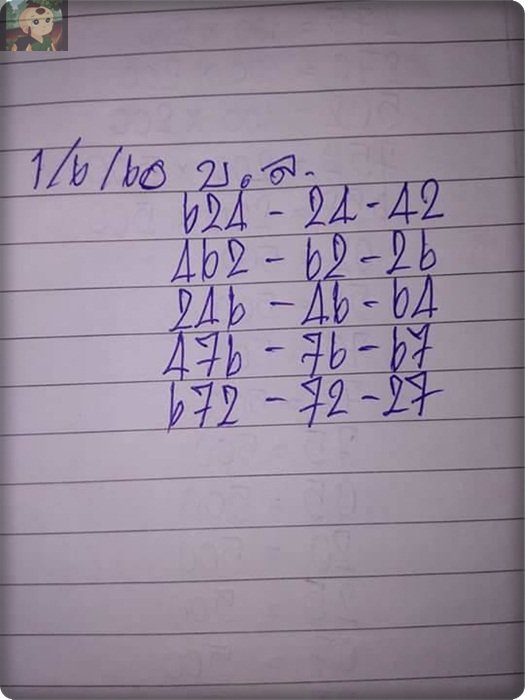 1/6/60 บ.ส.
624 - 24 - 42
462 - 62 - 26
246 - 46 - 64
476 - 76 - 67
672 - 72 - 27